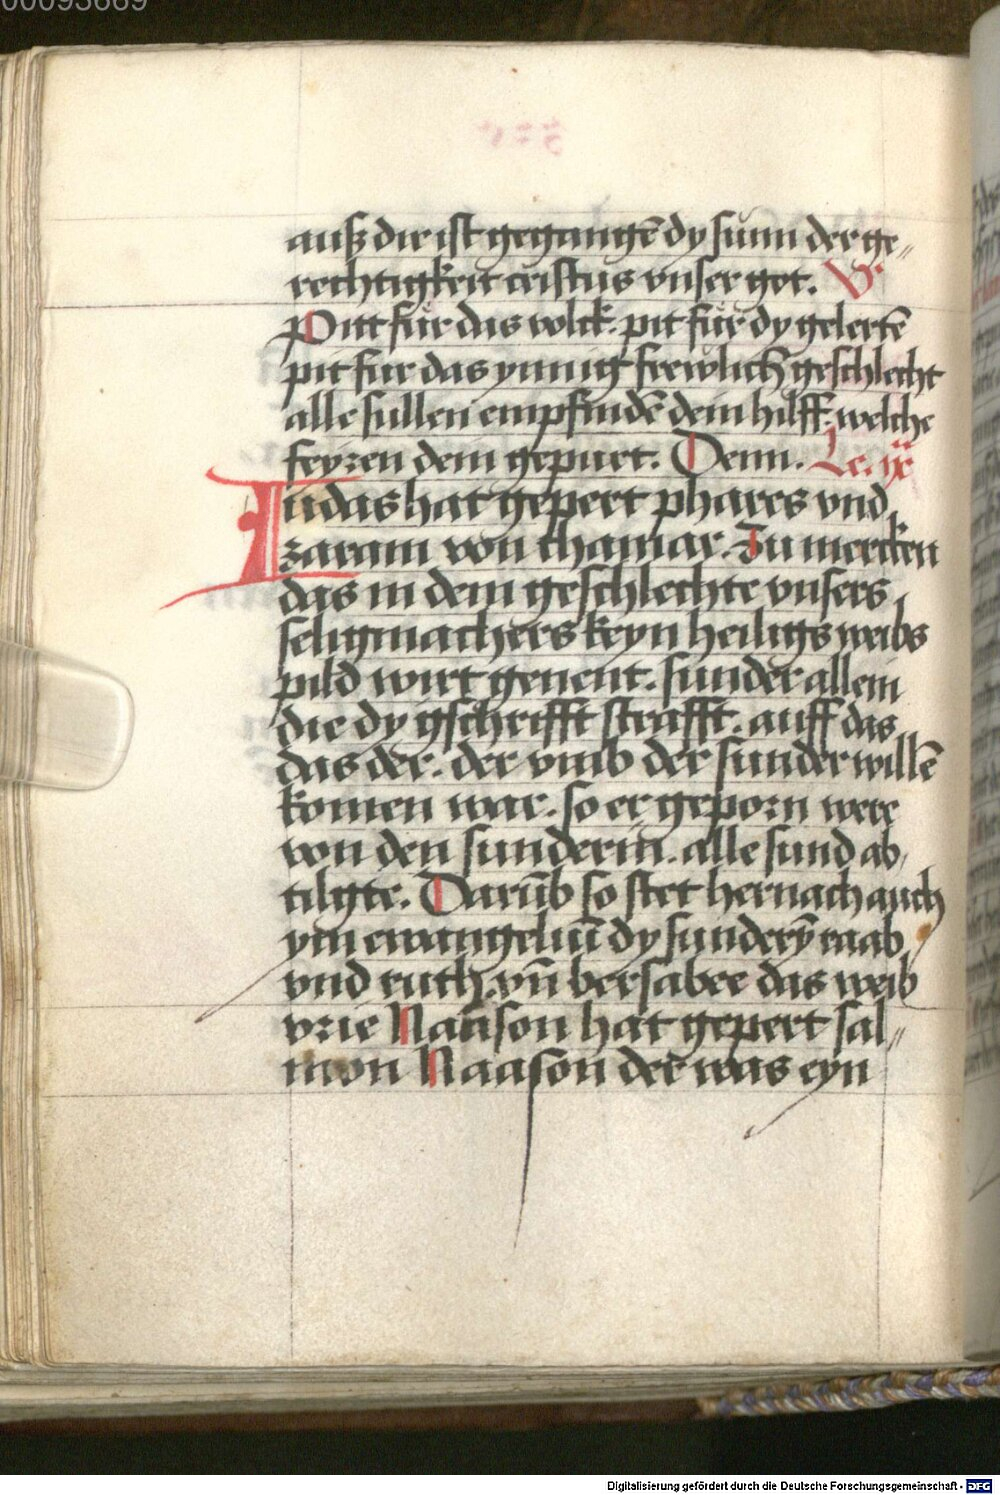 00093669
auß dir ist gegangē dy sunn der ge„
rechtigkeit cristus vnser got. V̓
Pitt für das volck. pit für dy gelertē
pit fur das ynnig frewlich geschlecht
alle sullen empfindē dein hilff. welche
feyren dein gepurt. Denn. Lc. ix
Iudas hat gepert phares vnd
zaram von thamar. Zu mercken
das in dem geschlechte vnsers
seligmachers keyn heiligs weibs
pild wirt genent. sunder allein
die dy gschrifft strafft. auff das
das der. der vmb der sunder willē
komen war. so er geporn were
von den sunderin. alle sund ab„
tilgte. Darūb so stet hernach auch
ym ewangeliū dy sunderȳ raab
vnd ruth. vn̄ bersabee das weib
vrie Naason hat gepert sal„
mon Naason der was eyn
Digitalisierung gefördert durch die Deutsche Forschungsgemeinschaft - DFG